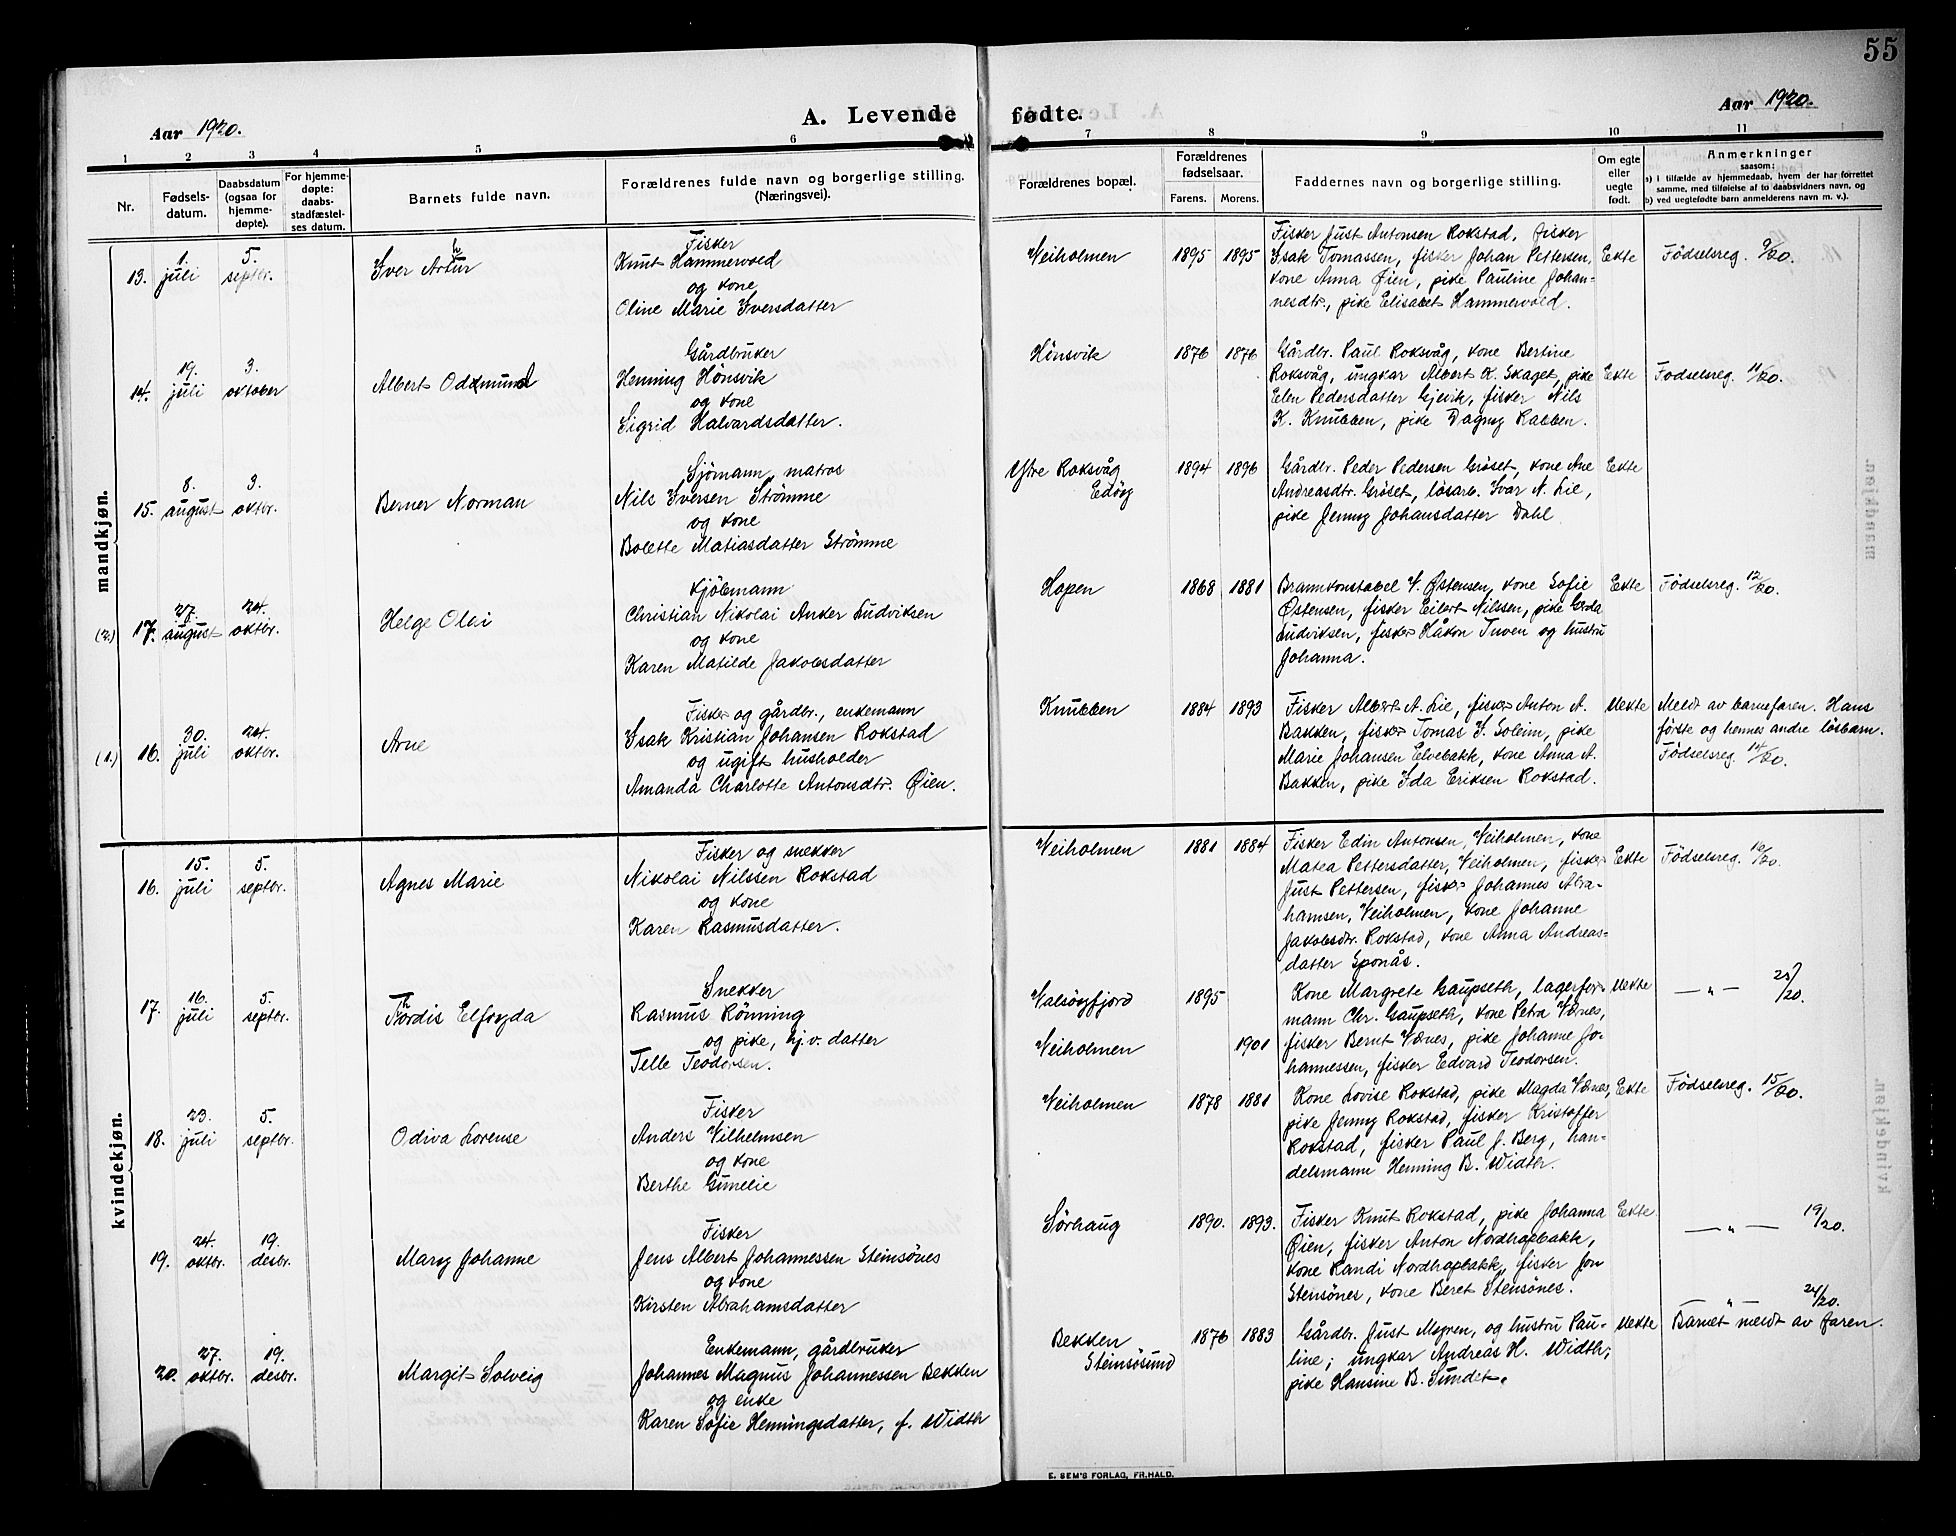 55
Aar 1920.
A. Levende fødte.
Aar 1920.
1 2 3 4 5 6 7 8 9 10 11
Nr.
Fødsels-
datum.
Daabsdatum
(ogsaa for
hjemme-
døpte).
For hjemme-
døpte:
daabs-
stadfæstel-
ses datum.
Barnets fulde navn.
Forældrenes fulde navn og borgerlige stilling.
(Næringsvei).
Forældrenes bopæl.
Forældrenes
fødselsaar.
Farens. Morens.
Faddernes navn og borgerlige stilling.
Om egte
eller
uegte
født.
Anmerkninger
saasom:
a) i tilfælde av hjemmedaab, hvem der har forrettet
samme, med tilføielse af to daabsvidners navn, og
b) ved uegtefødte barn anmelderens navn m. v.).
mandkjøn.
13.
1.
juli
5.
septbr.
Iver Arthur
Fisker
Knut Hammervold
og kone
Oline Marie Iversdatter
Veiholmen
1895 1895
Fisker Just Antonsen Rokstad, fisker
Isak Tomassen, fisker Johan Pettersen,
kone Anna Øien, pike Pauline Johan-
nesdtr., pike Elisabet Hammervold.
Ekte
Fødselsreg. 9/20.
14.
19.
juli
3.
oktober
Albert Oddmund
Gårdbruker
Henning Hønsvik
og kone
Sigrid Halvardsdatter.
Hønsvik
1876 1876
Gårdbr. Paul Roksvåg, kone Bertine
Roksvåg, ungkar Albert K. Skaget, pike
Elen Pedersdatter Gjevik, fisker Nils
K. Knubben, pike Dagny Rabben.
Ekte
Fødselsreg. 11/20.
15.
8.
august
3.
oktbr.
Berner Norman
Sjømann, matros
Nils Iversen Strømme
og kone
Bolette Matiasdatter Strømme
Ytre Roksvåg
Edøy
1894 1896
Gårdbr. Peder Pedersen Grøset, kone Ane
Andreasdtr. Grøset, løsarb. Ivar N. Lie,
pike Jenny Johansdatter Dahl
Ekte
(2.) 17.
27.
august
24.
oktbr.
Helge Olai
Kjøbmann
Christian Nikolai Anker Ludviksen
og kone
Karen Matilde Jakobsdatter
Hopen
1868 1881
Brannkonstabel V. Østensen, kone Sofie
Østensen, fisker Eilert Nilssen, pike Gerda
Ludviksen, fisker Håkon Tuven og hustru
Johanna.
Ekte
Fødselsreg. 12/20.
(1.) 16.
30.
juli
24.
oktbr.
Arne
Fisker og gårdbr., enkemann
Isak Kristian Johansen Rokstad
og ugift husholder
Amanda Charlotte Antonsdtr. Øien.
Knubben
1884 1893
Fisker Albert A. Lie, fisker Anton A.
Bakken, fisker Tomas I. Soleim, pike
Marie Johansen Elvebakk, kone Anna A.
Bakken, pike Ida Eriksen Rokstad.
Uekte
Meldt av barnefaren. Hans
første og hennes andre løsbarn.
Fødselsreg. 14/20.
kvindekjøn.
16.
15.
juli
5.
septbr.
Agnes Marie
Fisker og snekker
Nikolai Nilssen Rokstad
og kone
Karen Rasmusdatter.
Veiholmen
1881 1884
Fisker Edin Antonsen, Veiholmen, kone
Matea Pettersdatter, Veiholmen, fisker
Just Pettersen, fisker Johannes Abra-
hamsen, Veiholmen, kone Johanne
Jakobsdtr. Rokstad, kone Anna Andreas-
datter Sponås.
Ekte
Fødselsreg. 10/20.
17.
16.
juli
5.
septbr.
Thordis Elfryda
Snekker
Rasmus Rønning
og pike, hj.v. datter
Telle Teodorsen.
Valsøyfjord
Veiholmen
1895
1901
Kone Margrete Gaupseth, lagerfor-
mann Chr. Gaupseth, kone Petra Værnes,
fisker Bernt Værnes, pike Johanne Jo-
hannessen, fisker Edvard Teodorsen.
Uekte
— " — /20.
18.
23.
juli
5.
septbr.
Odiva Lorense
Fisker
Anders Vilhelmsen
og kone
Berthe Gunelie
Veiholmen
1878 1881
Kone Lovise Rokstad, pike Magda Værnes,
pike Jenny Rokstad, fisker Kristoffer
Rokstad, fisker Paul J. Berg, han-
delsmann Henning B. Width.
Ekte
Fødselsreg. 15/20.
19.
24.
oktbr.
19.
desbr.
Mary Johanne
Fisker
Jens Albert Johannessen Steinsønes
og kone
Kirsten Abrahamsdatter
Sørhaug
1890. 1893.
Fisker Knut Rokstad, pike Johanna
Øien, fisker Anton Nordhopbakk,
kone Randi Nordhopbakk, fisker Jon
Stensønes, kone Beret Stensønes.
Ekte.
— " — 19/20.
20.
27.
oktbr.
19.
desbr.
Margit Solveig
Enkemann, gårdbruker
Johannes Magnus Johannessen Bekken
og enke
Karen Sofie Henningsdatter, f. Width
Bekken
Steinsøsund
1876 1883
Gårdbr. Just Myren, og hustru Pau-
line; ungkar Andreas H. Width;
pike Hansine B. Sundet.
Uekte
— " — 24/20.
Barnet meldt av faren.
E. SEM'S FORLAG, FR.HALD.